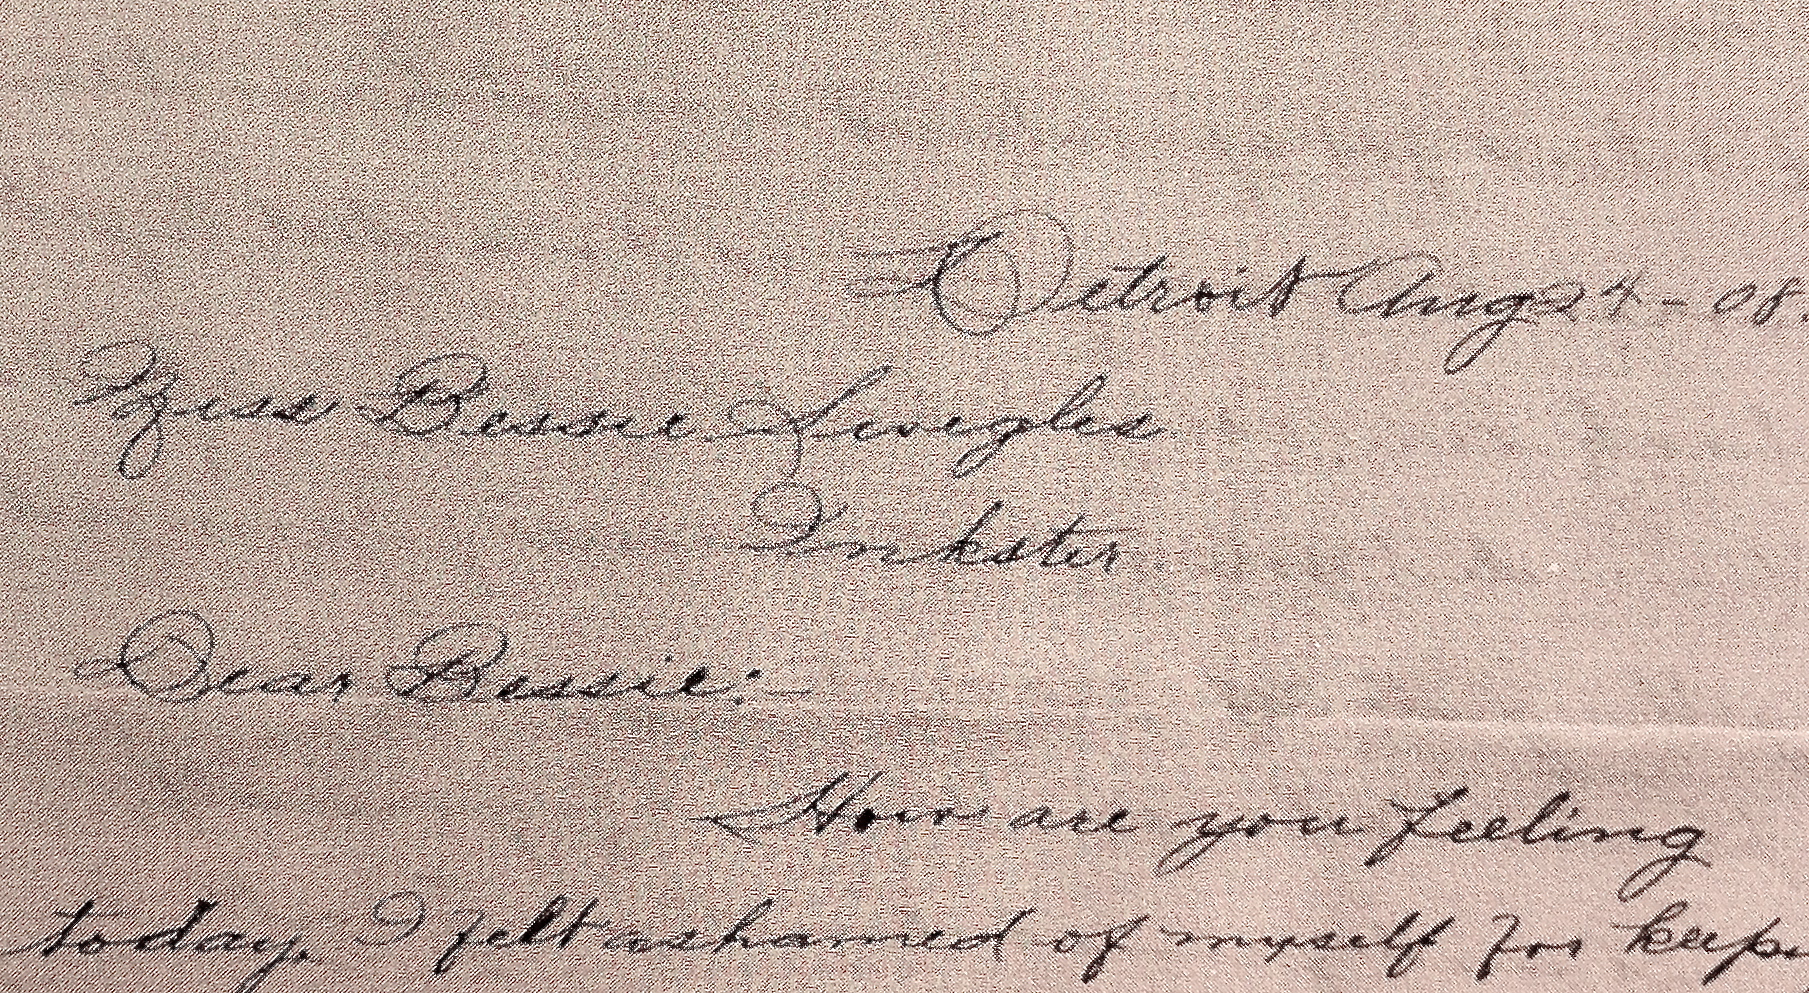 Detroit Aug 24 - 08.
Miss Bessie
Inkster
Dear Bessie:
How are you feeling
today. I felt ashamed of myself for